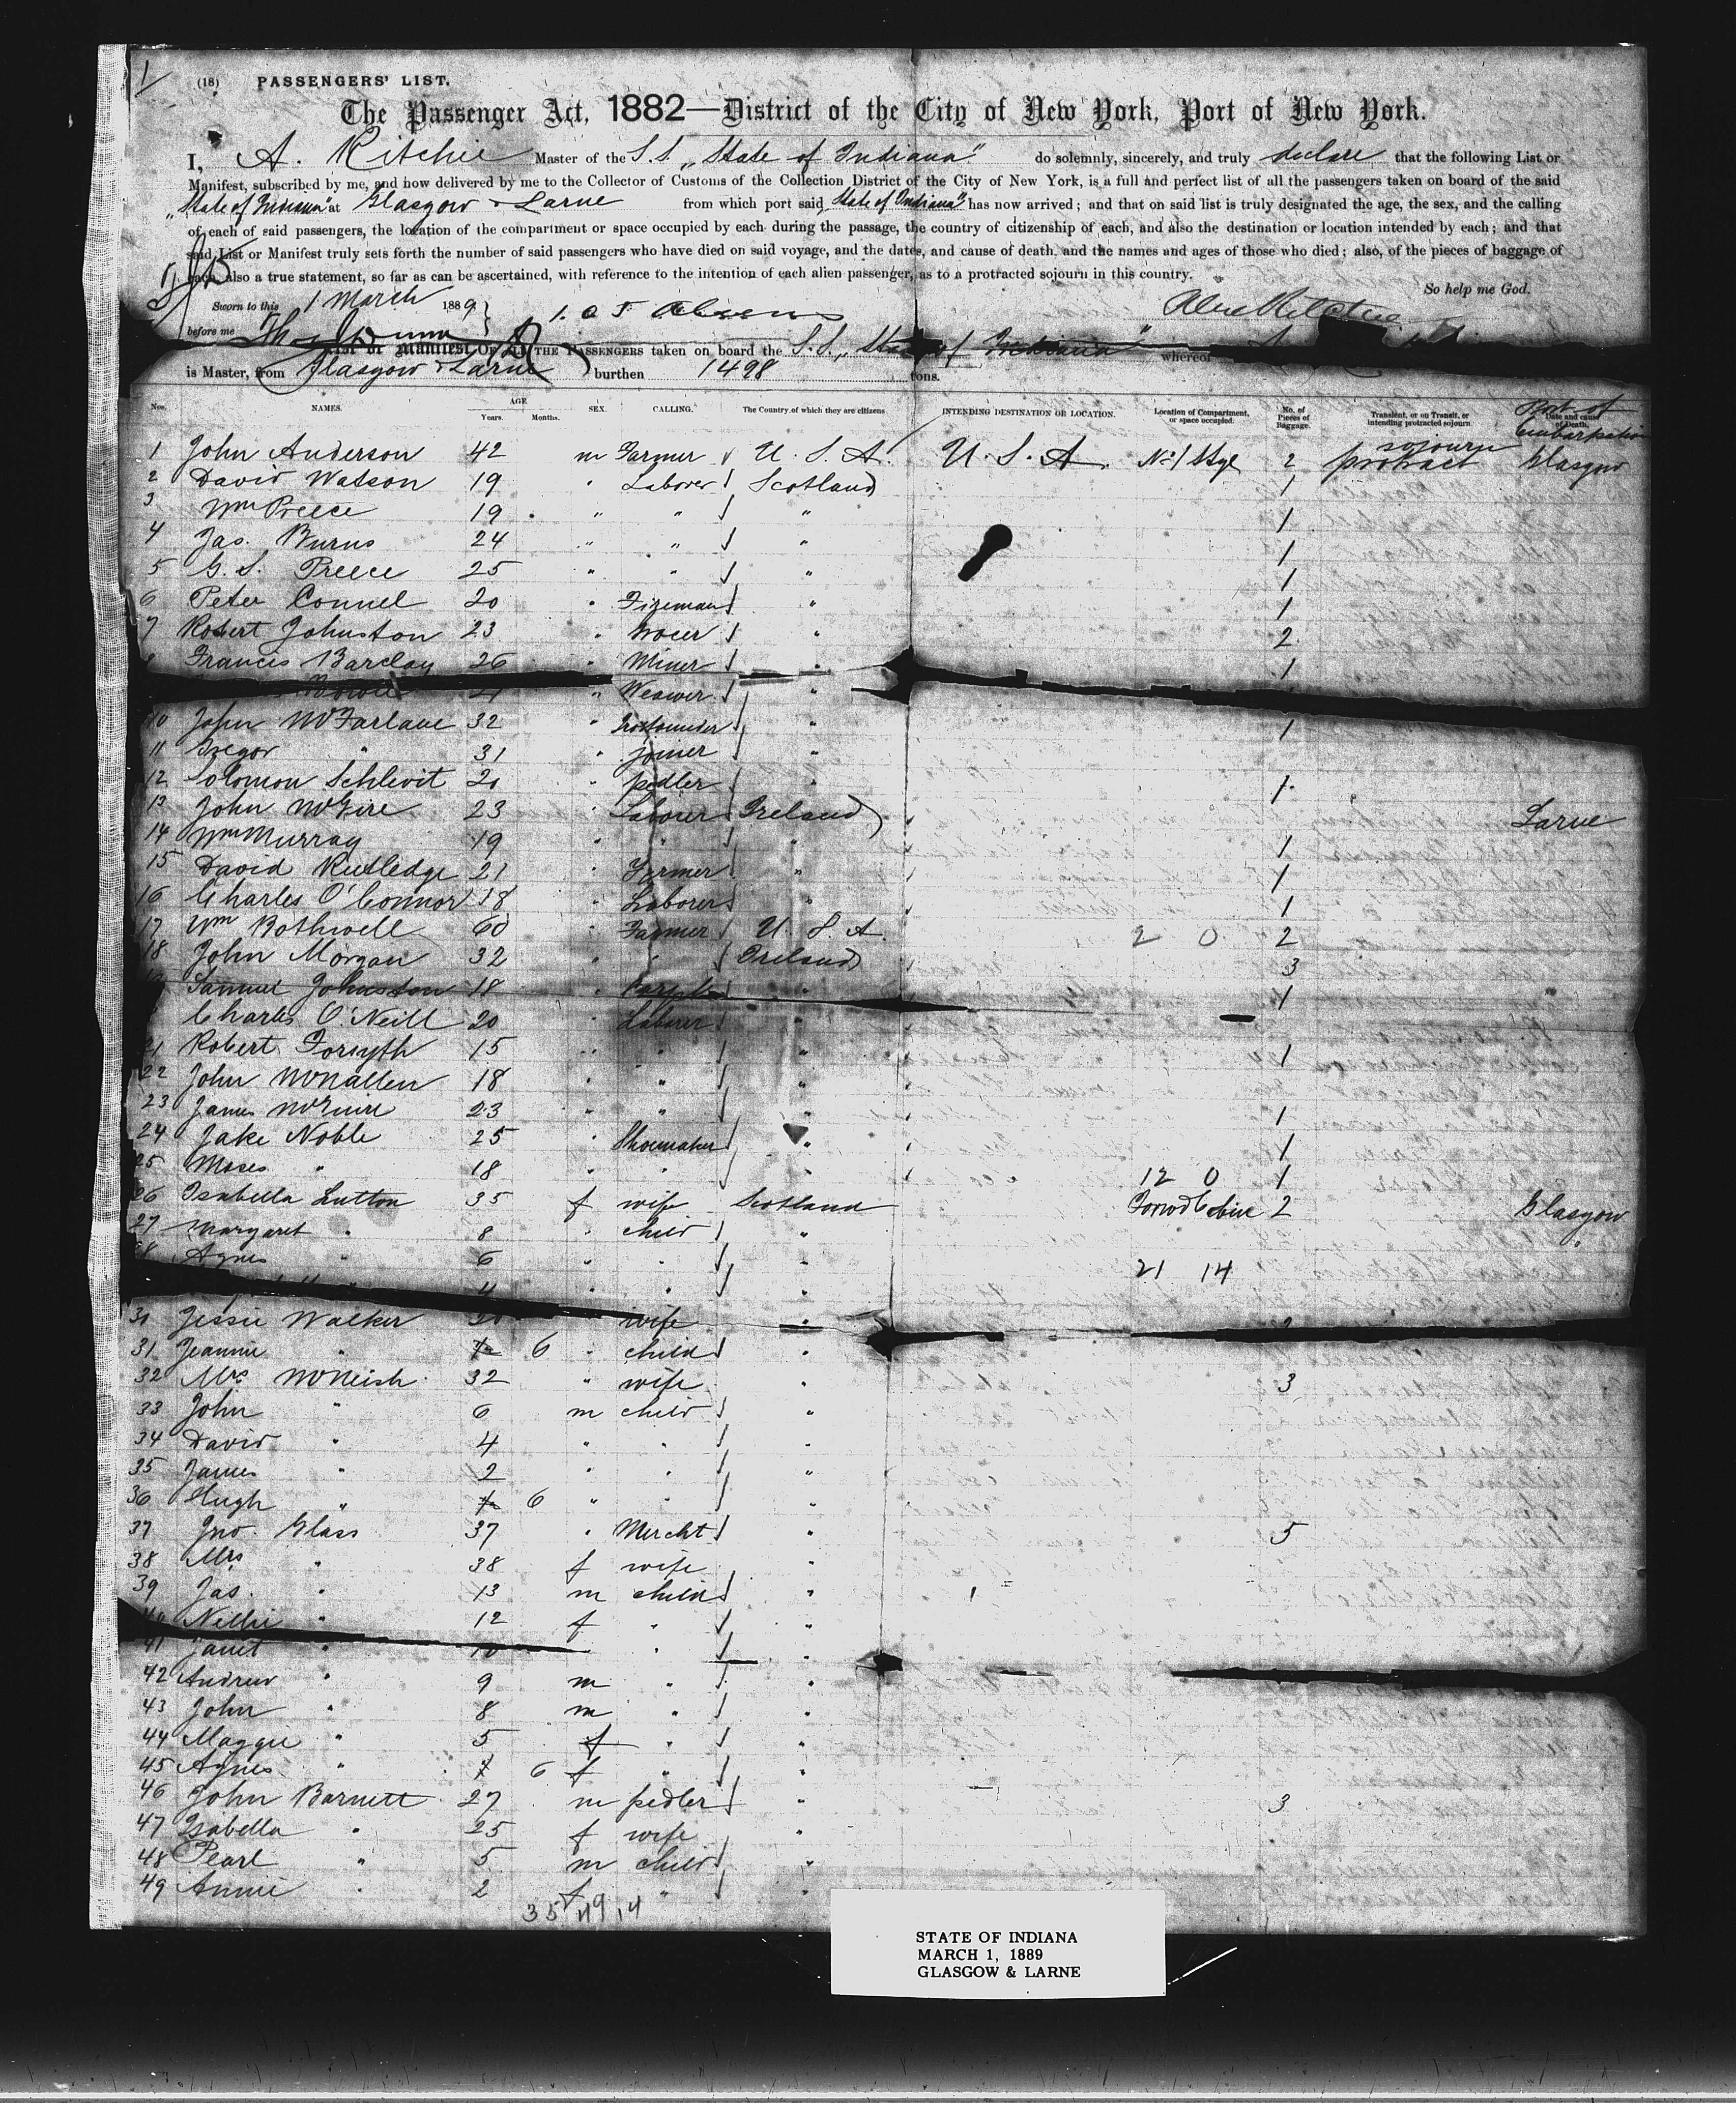 1
(18) PASSENGERS' LIST.
The Passenger Act, 1882—District of the City of New York, Port of New York.
I, A. Ritchie Master of the S.S. „State of Indiana" do solemnly, sincerely, and truly declare that the following List or
Manifest, subscribed by me, and now delivered by me to the Collector of Customs of the Collection District of the City of New York, is a full and perfect list of all the passengers taken on board of the said
„State of Indiana" at Glasgow & Larne from which port said „State of Indiana" has now arrived; and that on said list is truly designated the age, the sex, and the calling
of each of said passengers, the location of the compartment or space occupied by each during the passage, the country of citizenship of each, and also the destination or location intended by each; and that
said List or Manifest truly sets forth the number of said passengers who have died on said voyage, and the dates, and cause of death, and the names and ages of those who died; also, of the pieces of baggage of
each, also a true statement, so far as can be ascertained, with reference to the intention of each alien passenger, as to a protracted sojourn in this country.
So help me God.
Sworn to this 1 March 1889
before me
List or Manifest OF ALL THE PASSENGERS taken on board the S.S. „State of Indiana" whereof
is Master, from Glasgow & Larne burthen 1498 tons.
Nos. NAMES. AGE Years. Months. SEX. CALLING. The Country of which they are citizens INTENDING DESTINATION OR LOCATION. Location of Compartment, or space occupied. No. of Pieces of Baggage. Transient, or on Transit, or intending protracted sojourn. Date and cause of Death. Port of Embarkation
1 John Anderson 42 m Farmer U. S. A. U. S. A. No 1 Stge 2 protract sojourn Glasgow
2 David Watson 19 " Laborer Scotland 1
3 Wm Preece 19 " " " 1
4 Jas. Burns 24 " " " 1
5 G. S. Preece 25 " " " 1
6 Peter Connel 20 " Fireman " 1
7 Robert Johnston 23 " Grocer " 2
8 Francis Barclay 26 " Miner " 1
" Weaver "
10 John McFarlane 32 " " 1
11 Gregor " 31 " joiner "
12 Solomon Schlevit 20 " pedler " 1
13 John McGire 23 Laborer Ireland Larne
14 Wm Murray 19 " " " 1
15 David Rutledge 21 " Farmer " 1
16 Charles O'Connor 18 " Laborer " 1
17 Wm Bothwell 60 " Farmer U. S. A. 2 0 2
18 John Morgan 32 " " Ireland 3
Samuel Johnston 18 " " 1
Charles O'Neill 20 Laborer "
21 Robert Forsyth 15 " " " 1
22 John McNallen 18 " " "
23 James 23 " " " 1
24 Jake Noble 25 " Shoemaker " 1
25 Moses " 18 " " " 12 0 1
26 Isabella Lutton 35 f wife Scotland Forwd Cabin 2 Glasgow
27 Margaret " 8 " child " "
28 Agnes " 6 " " " 21 14
4 " " "
30 Jessie Walker wife "
31 Jeannie " 6 " child "
32 Mrs McNeish 32 " wife " 3
33 John " 6 m child "
34 David " 4 " " "
35 James " 2 " " "
36 Hugh " 6 " " "
37 Jno. Glass 37 " Mercht " 5
38 Mrs " 38 f wife "
39 Jas. " 13 m child "
40 Nellie " 12 f " "
41 Janet " 10 " "
42 Andrew " 9 m " "
43 John " 8 m " "
44 Maggie " 5 f " "
45 Agnes " 6 f " "
46 John Barnett 27 m pedler " 3
47 Isabella " 25 f wife "
48 Pearl " 5 m child "
49 Annie " 2 f " "
35 49 14
STATE OF INDIANA
MARCH 1, 1889
GLASGOW & LARNE